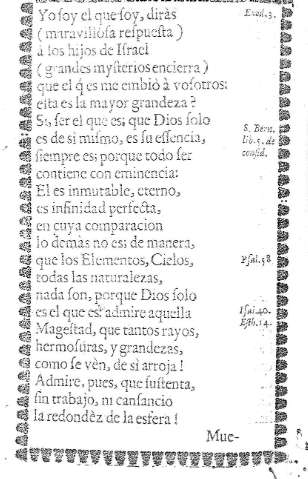 Yo ſoy el que ſoy, diràs
Exod. 3.
( maravilloſa reſpueſta )
à los hijos de Iſrael
( grandes myſterios encierra )
que el q̃ es me embiò à voſotros:
eſta es la mayor grandeza ?
Si, ſer el que es; que Dios ſolo
es de si miſmo, es ſu eſſencia,
S. Bern.
lib. 5. de
conſid.
ſiempre es; porque todo ſer
contiene con eminencia:
El es inmutable, eterno,
es infinidad perfecta,
en cuya comparacion
lo demàs no es; de manera,
que los Elementos, Cielos,
Pſal. 38
todas las naturalezas,
nada ſon, porque Dios ſolo
es el que es: admire aquella
Iſai. 40.
Eſth. 14.
Mageſtad, que tantos rayos,
hermoſuras, y grandezas,
como ſe vèn, de si arroja !
Admire, pues, que ſuſtenta,
ſin trabajo, ni canſancio
la redondèz de la esfera !
Mue-